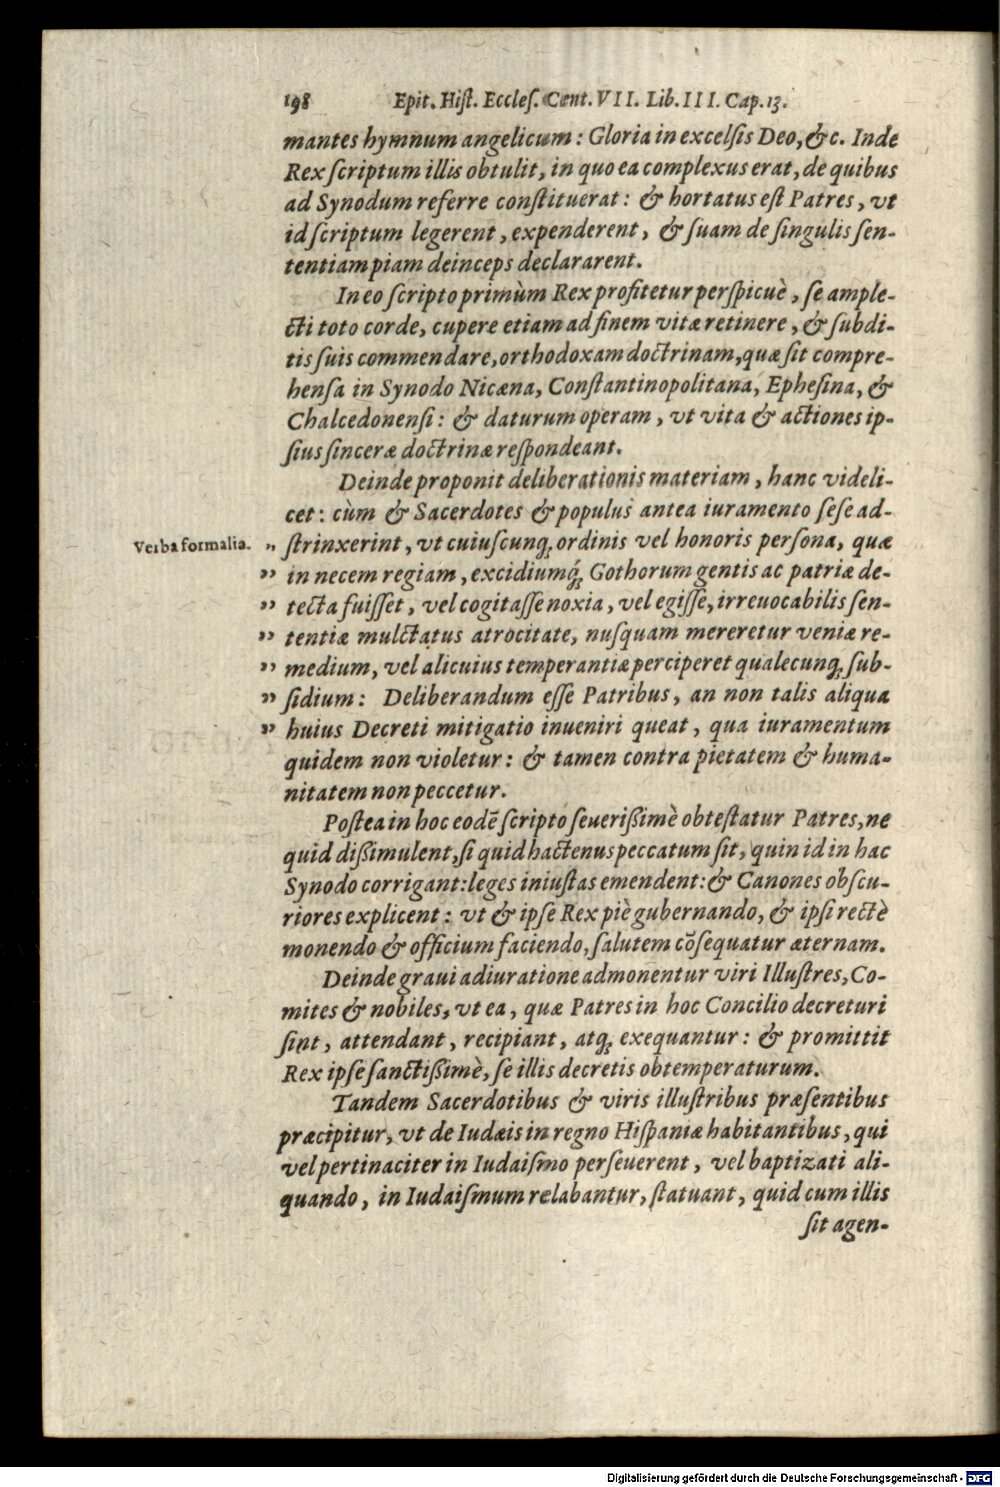 198 Epit. Hiſt. Eccleſ. Cent. VII. Lib. III. Cap. 13.
mantes hymnum angelicum: Gloria in excelſis Deo, &c. Inde
Rex ſcriptum illis obtulit, in quo ea complexus erat, de quibus
ad Synodum referre conſtituerat: & hortatus eſt Patres, vt
id ſcriptum legerent, expenderent, & ſuam de ſingulis ſen-
tentiam piam deinceps declararent.
In eo ſcripto primùm Rex profitetur perſpicuè, ſe ample-
cti toto corde, cupere etiam ad finem vitæ retinere, & ſubdi-
tis ſuis commendare, orthodoxam doctrinam, quæ ſit compre-
henſa in Synodo Nicæna, Conſtantinopolitana, Epheſina, &
Chalcedonenſi: & daturum operam, vt vita & actiones ip-
ſius ſinceræ doctrinæ reſpondeant.
Deinde proponit deliberationis materiam, hanc videli-
cet: cùm & Sacerdotes & populus antea iuramento ſeſe ad-
Verba formalia. „ ſtrinxerint, vt cuiuſcunq́; ordinis vel honoris perſona, quæ
” in necem regiam, excidiumq́; Gothorum gentis ac patriæ de-
” tecta fuiſſet, vel cogitaſſe noxia, vel egiſſe, irreuocabilis ſen-
” tentiæ mulctatus atrocitate, nuſquam mereretur veniæ re-
” medium, vel alicuius temperantiæ perciperet qualecunq; ſub-
” ſidium: Deliberandum eſſe Patribus, an non talis aliqua
” huius Decreti mitigatio inueniri queat, qua iuramentum
quidem non violetur: & tamen contra pietatem & huma-
nitatem non peccetur.
Poſtea in hoc eodē ſcripto ſeuerißimè obteſtatur Patres, ne
quid dißimulent, ſi quid hactenus peccatum ſit, quin id in hac
Synodo corrigant: leges iniuſtas emendent: & Canones obſcu-
riores explicent: vt & ipſe Rex piè gubernando, & ipſi rectè
monendo & officium faciendo, ſalutem cōſequatur æternam.
Deinde graui adiuratione admonentur viri Illuſtres, Co-
mites & nobiles, vt ea, quæ Patres in hoc Concilio decreturi
ſint, attendant, recipiant, atq; exequantur: & promittit
Rex ipſe ſanctißimè, ſe illis decretis obtemperaturum.
Tandem Sacerdotibus & viris illuſtribus præſentibus
præcipitur, vt de Iudæis in regno Hiſpaniæ habitantibus, qui
vel pertinaciter in Iudaiſmo perſeuerent, vel baptizati ali-
quando, in Iudaiſmum relabantur, ſtatuant, quid cum illis
ſit agen-
Digitalisierung gefördert durch die Deutsche Forschungsgemeinschaft - DFG